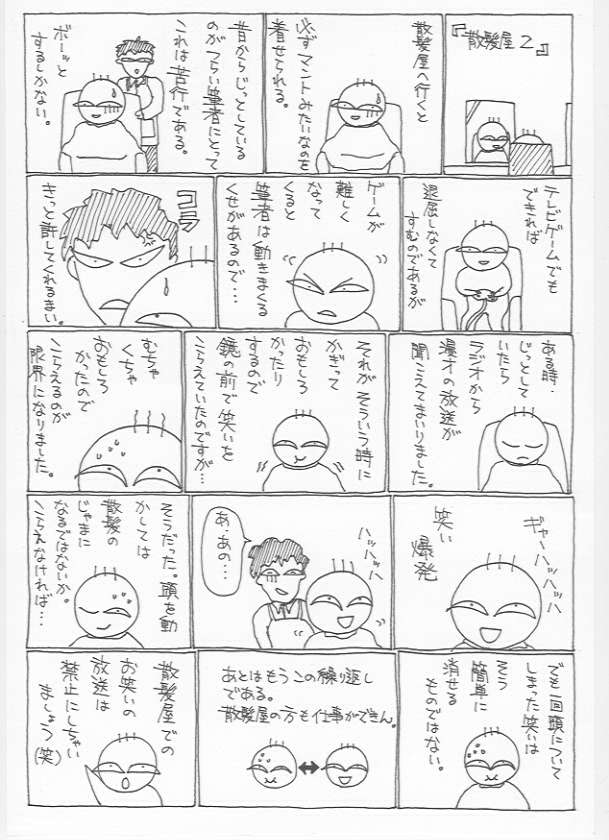 『散髪屋2』
散髪屋へ行くと
必ずマントみたいなのを
着せられる。
昔からじっとしている
のがつらい筆者にとって
これは苦行である。
ボーッと
するしかない。
テレビゲームでも
できれば
退屈しなくて
すむのであるが
ゲームが
難しく
なって
くると
筆者は動きまくる
くせがあるので…
コラ
きっと許してくれるまい。
ある時、
じっとして
いたら
ラジオから
漫才の放送が
聞こえてまいりました。
それがそういう時に
かぎって
おもしろ
かったり
するので
鏡の前で笑いを
こらえていたのですが…
むちゃ
くちゃ
おもしろ
かったので
こらえるのが
限界になりました。
ギャーハッハッハッハ
笑い
爆発
ハッハッハッ
あ、あの…
そうだった。頭を動
かしては
散髪の
じゃまに
なるではないか。
こらえなければ…
でも一回頭について
しまった笑いは
そう
簡単に
消せる
ものではない。
あとはもうこの繰り返し
である。
散髪屋の方も仕事ができん。
散髪屋での
お笑いの
放送は
禁止にしちゃい
ましょう(笑)